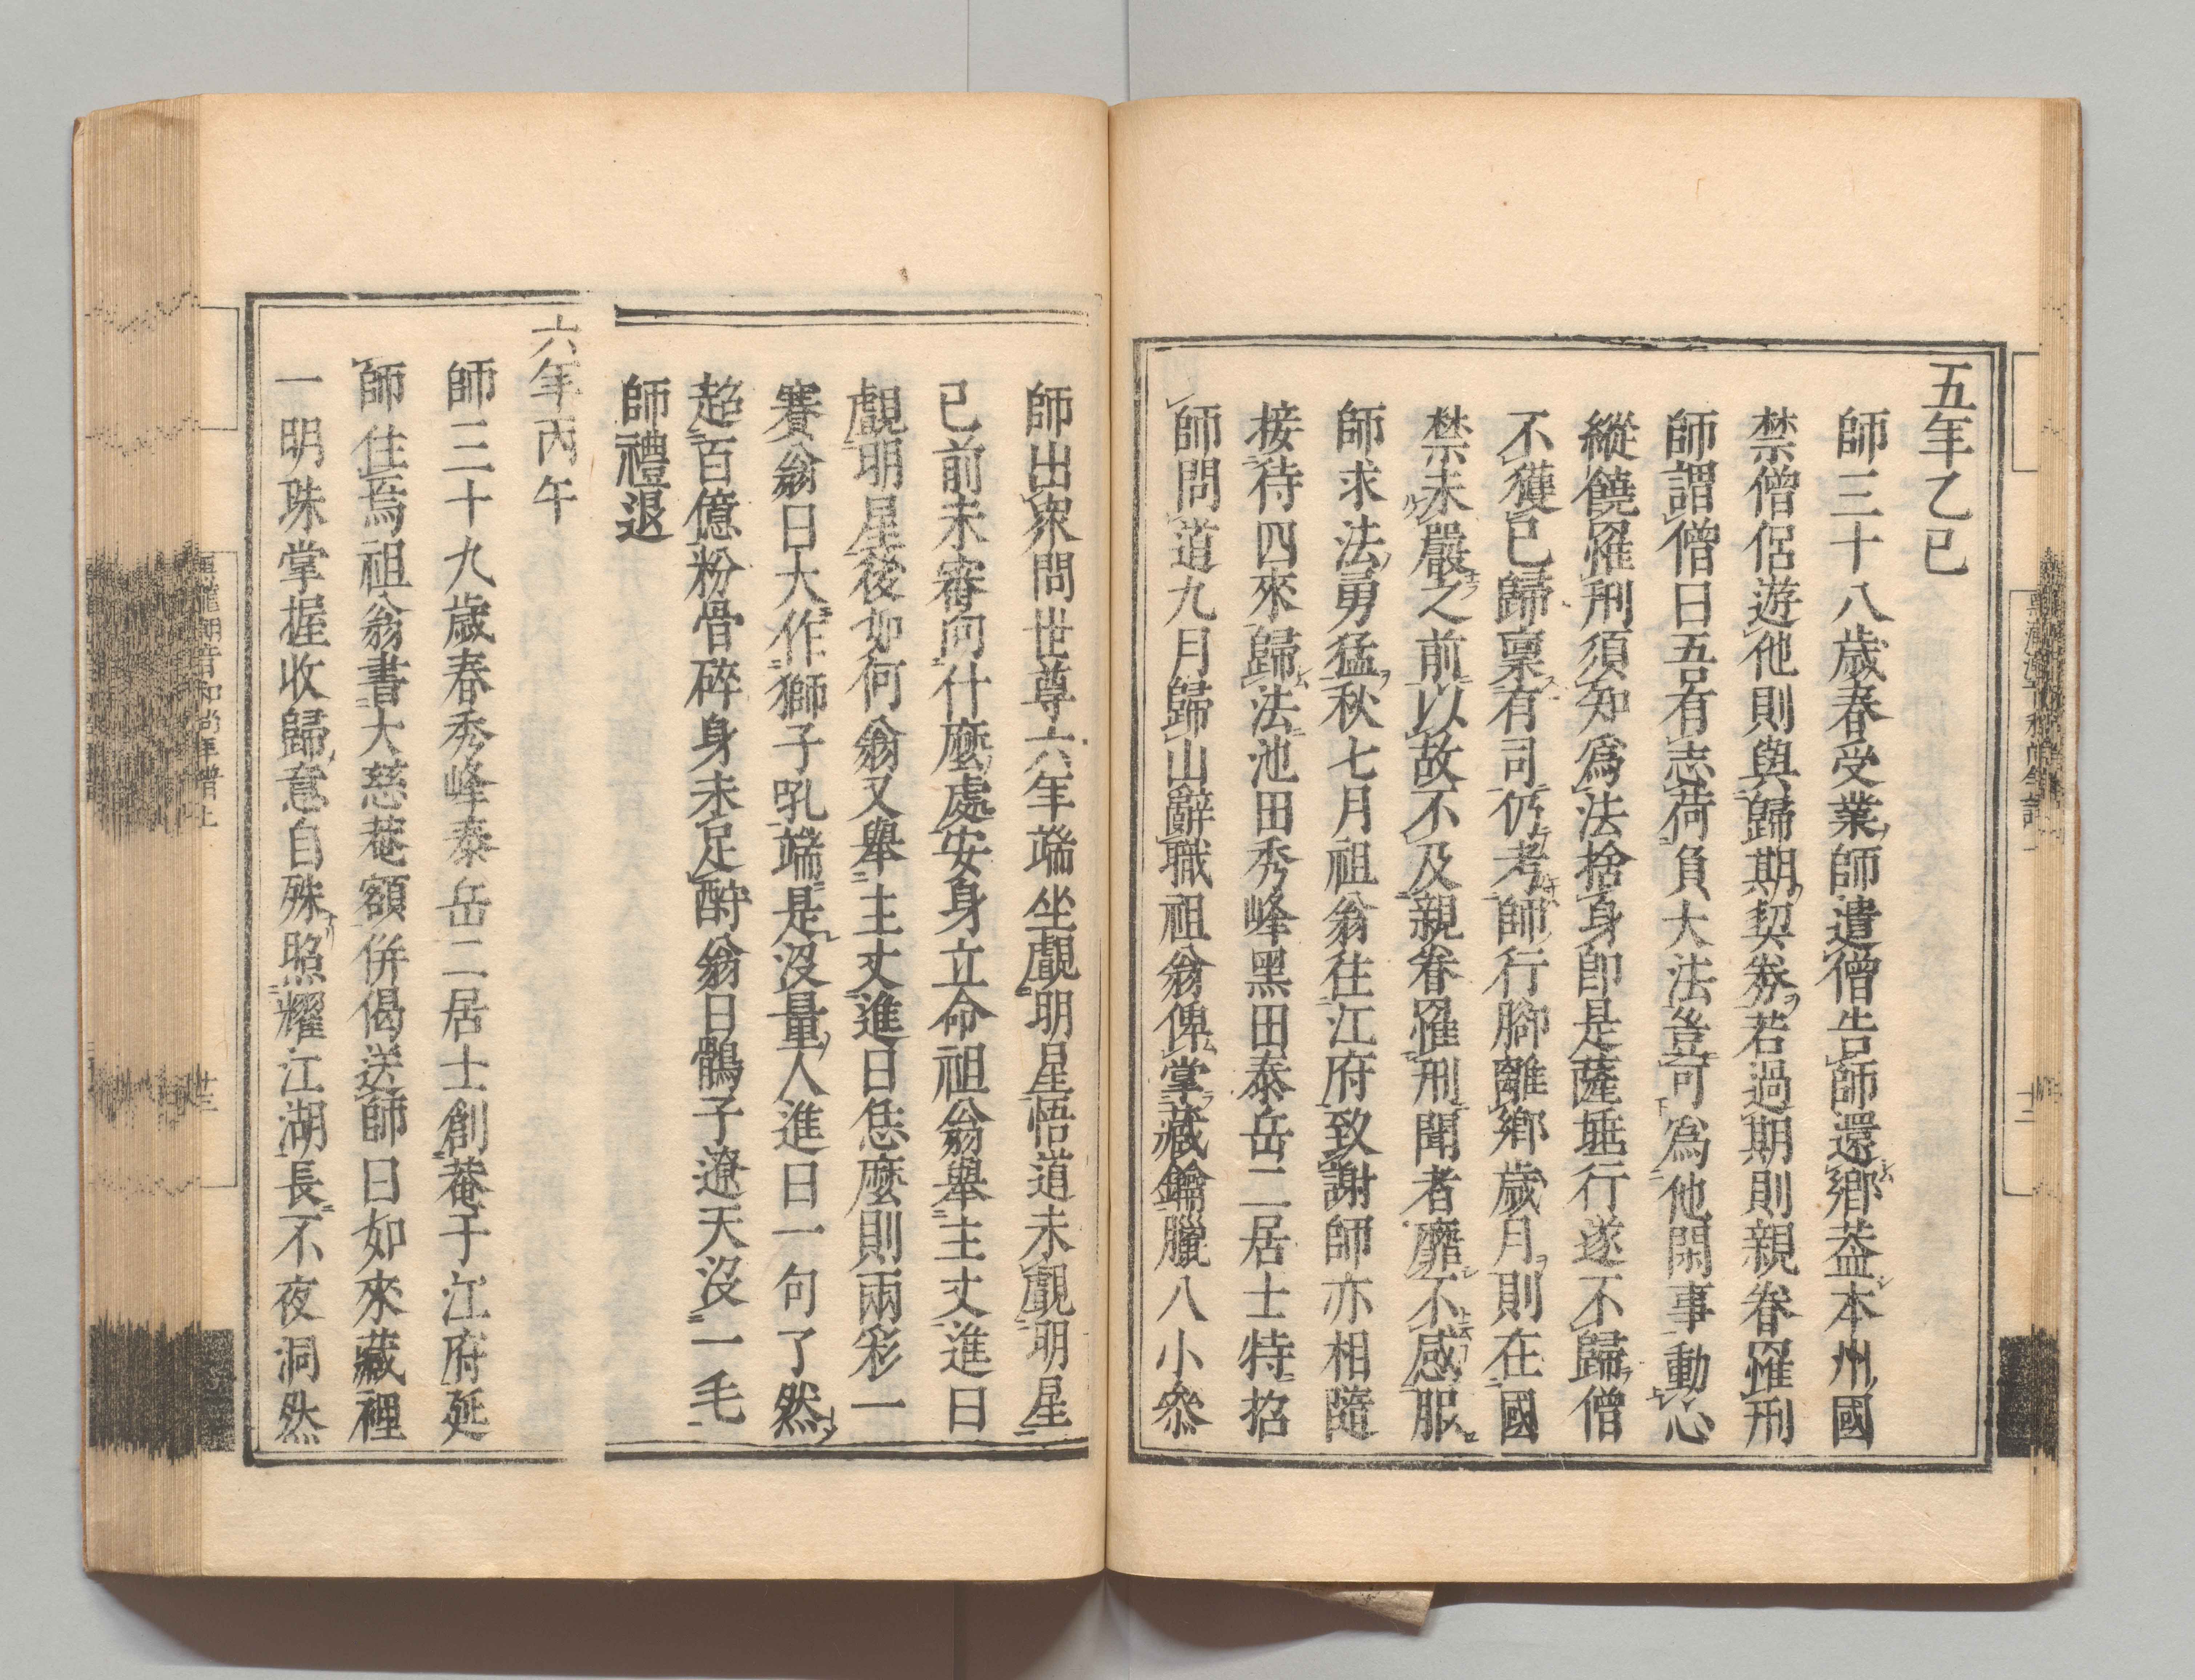 五年乙巳
師三十八歲春受業師遣僧告師還鄉葢本州國
禁僧侶遊他則與歸期契券若過期則親眷罹刑
師謂僧曰吾有志荷負大法豈可爲他閑事動心
縱饒罹刑須知爲法捨身卽是薩埵行遂不歸僧
不獲已歸稟有司仍考師行腳離鄉歲月則在國
禁未嚴之前以故不及親眷罹刑聞者靡不感服
師求法勇猛秋七月祖翁往江府致謝師亦相隨
接待四來歸法池田秀峰黑田泰岳二居士特招
師問道九月歸山辭職祖翁俾掌藏鑰臘八小參
師出衆問世尊六年端坐覩明星悟道未覩明星
已前未審向什麼處安身立命祖翁舉主丈進曰
覩明星後如何翁又舉主丈進曰恁麼則兩彩一
賽翁曰大作獅子吼端是沒量人進曰一句了然
超百億粉骨碎身未足酧翁曰鶻子遼天沒一毛
師禮退
六年丙午
師三十九歲春秀峰泰岳二居士創菴于江府延
師住焉祖翁書大慈菴額併偈送師曰如來藏裡
一明珠掌握收歸意自殊照耀江湖長不夜洞然
潮音和尚年譜上